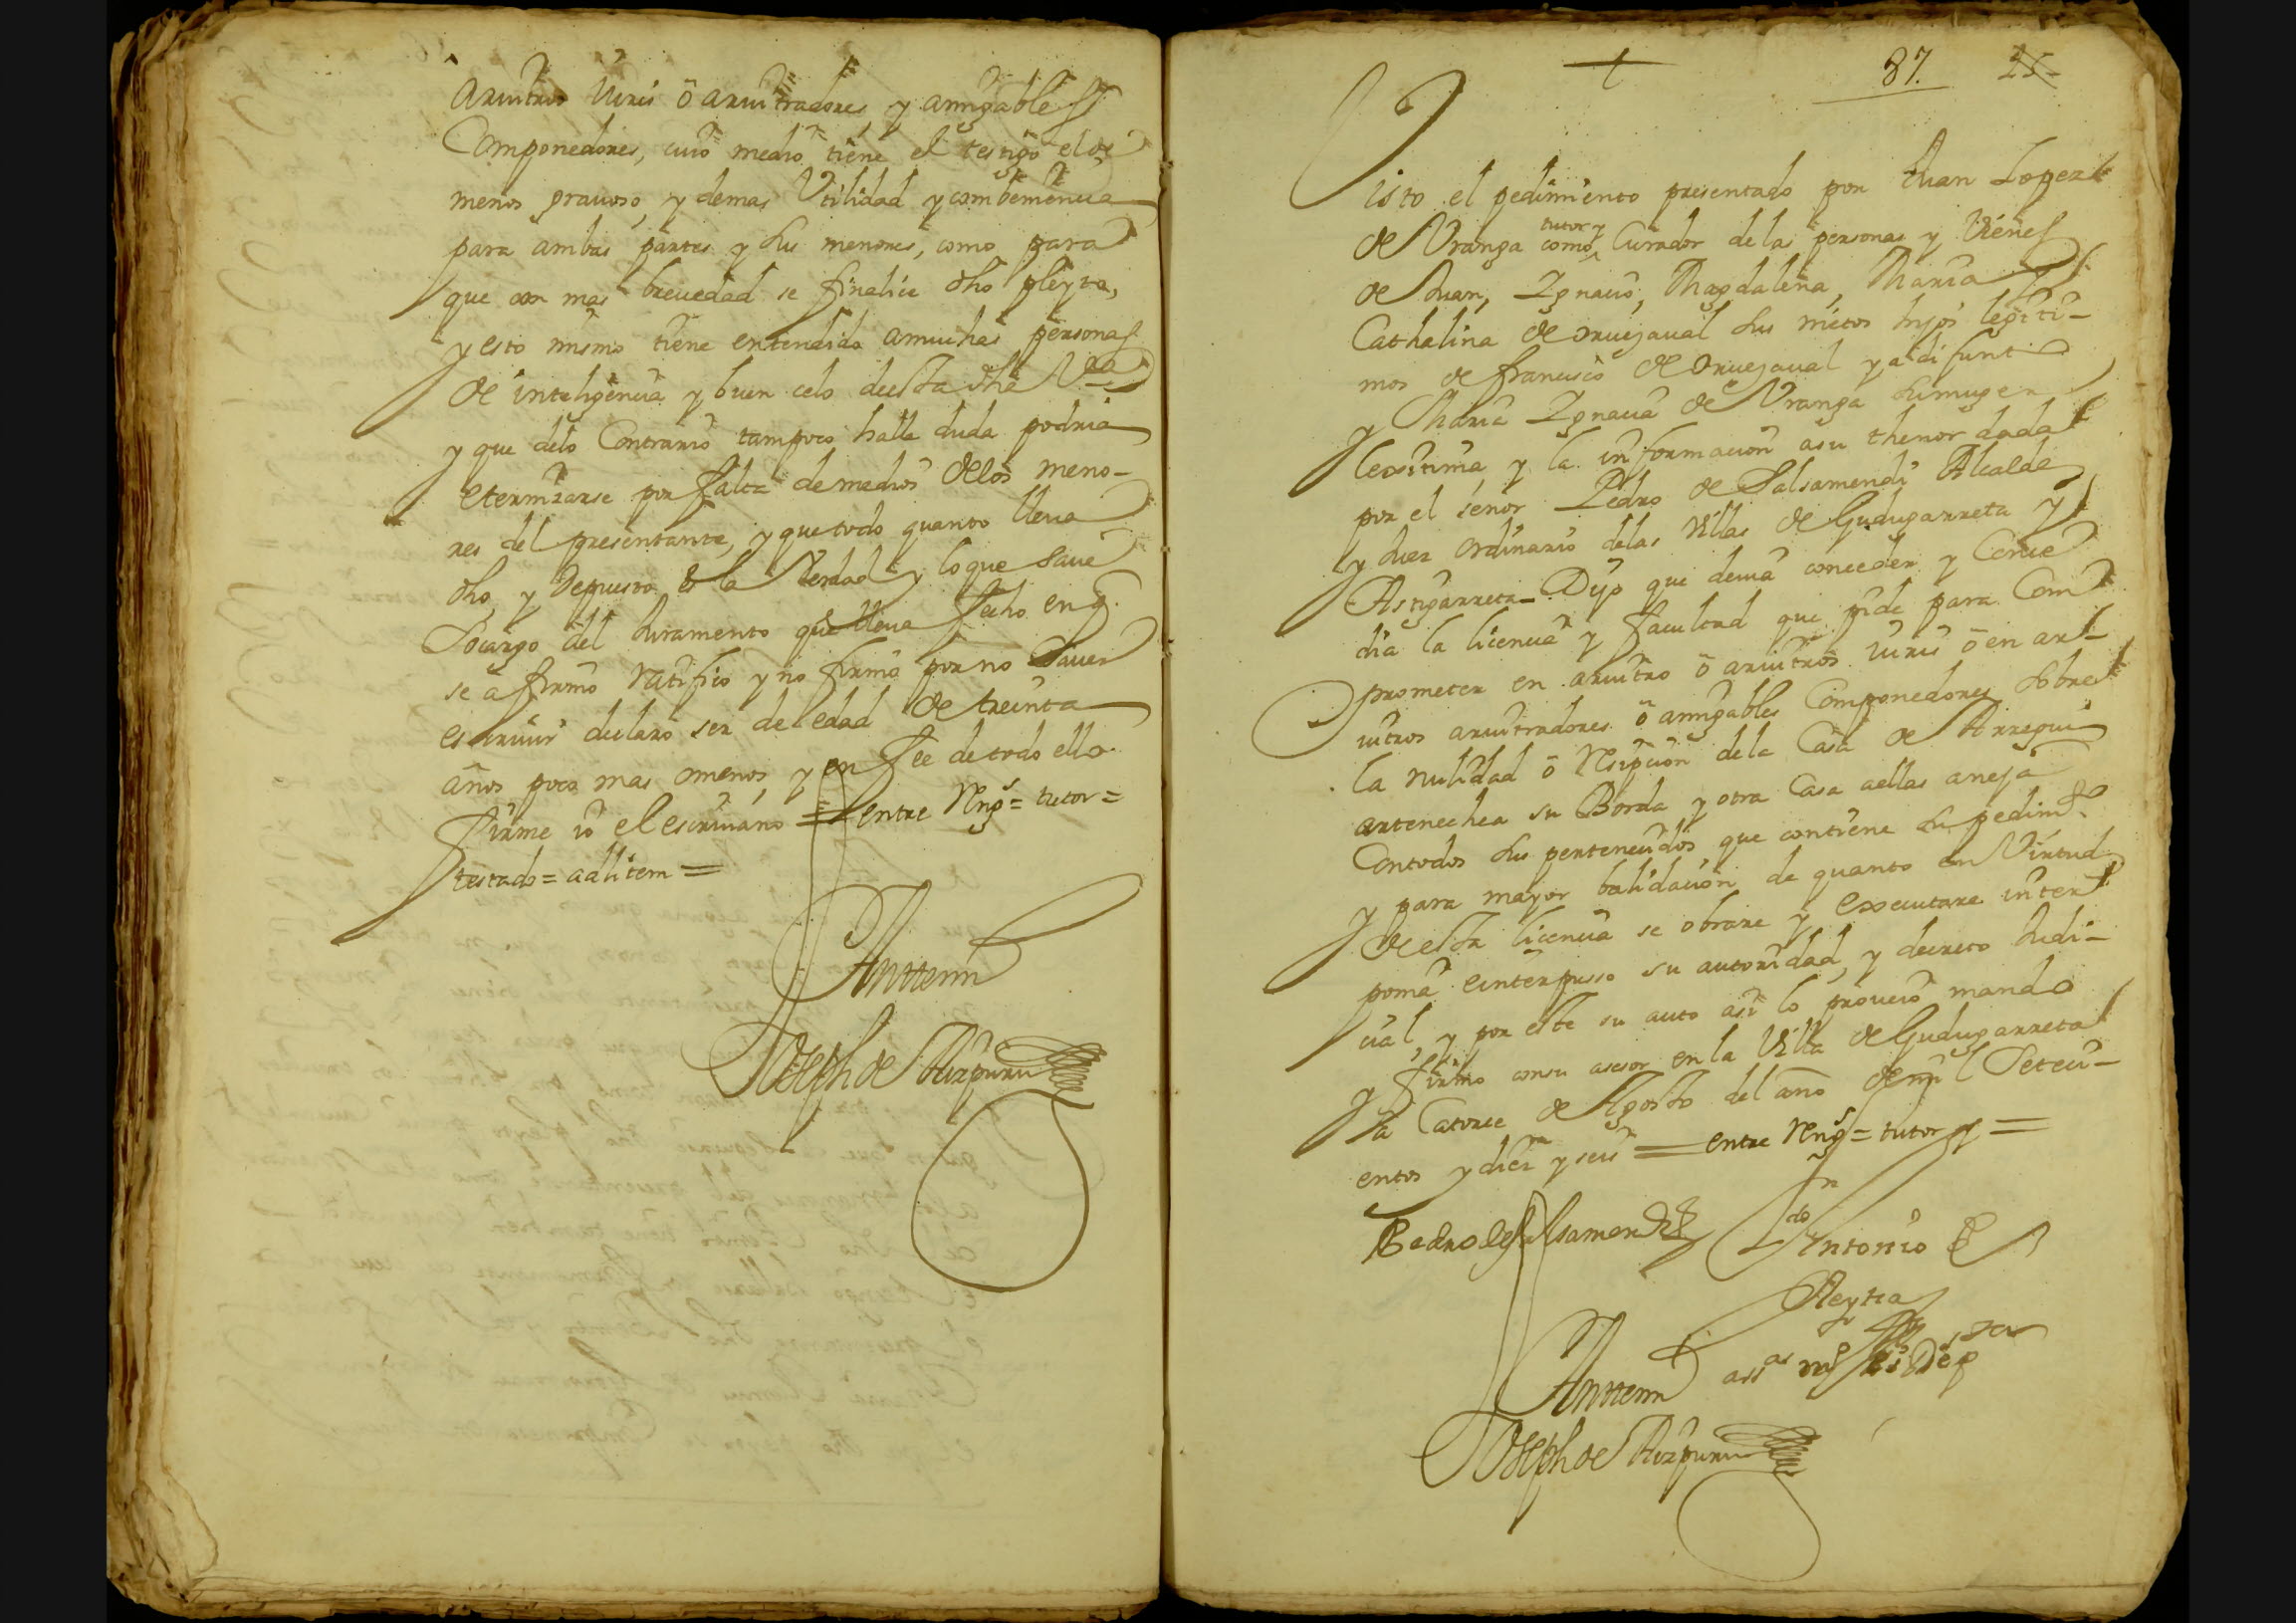 Aruitros Iuris ō aruitradores y amigables
Componedores, cuio medio tiene el testigo el de
menos grauoso, y demas Vtilidad y combeniencia
para ambas partes y sus menores, como para
que con mas breuedad se finalice dho pleyto,
y esto mismo tiene entendido amuchas personas
de inteligencia y buen celo deesta dha Va
y que delo Contrario tampoco halla duda podria
eternizarse por falta de medios de los meno-
res del presentante, y que todo quanto lleua
dho, y depuesto es la Verdad y lo que saue
socargo del Juramento que lleua fecho en q.
se afirmo ratifico y no firmo por no sauer
escriuir declaro ser de edad de treinta
años poco mas omenos, y en fee de todo ello
firme io el escriuano = entre Rengs = tutor =
testado = adlitem =
Anttemi
Joseph de Aizpuru
87. 25
Visto el pedimiento presentado por Juan Lopez
de Vranga como tutor y Curador de las personas y Vienes
de Juan, Ignacio, Magdalena, Maria
Cathalina de Oruejaual sus nietos hijos legiti-
mos de francisco de Oruejaual ya difunto
y Maria Ignacia de Vranga su muger
lexitima, y la informacion a su thenor dada
por el señor Pedro de Salsamendi Alcalde
y Juez ordinario delas Villas de Gudugarreta y
Astigarreta - Dijo que deuia conceder y Conce
dia la licencia y facultad que pide para Com
prometer en aruitro ō aruitros iuris ō en ar-
uitros aruitradores ō amigables Componedores sobre
la nulidad ō Resipcion de la Casa de Arregui
artenechea su Borda y otra Casa aellas aneja
Contodos sus pertenecidos que contiene su pedimto
y para mayor balidacion de quanto en Virtud
de esta licencia se obrare y executare inter
ponia einterpusso su autoridad, y decreto Judi-
cial, y por este su auto asi lo proueio mando
y firmo consu asesor en la Villa de Gudugarreta
a Catorce de Agosto del año de mil Setecie-
entos y diez y seis = entre Rengs = tutor y =
Pedro de Salsamendi Ldo Antonio de
Reytia
Anttemi
Joseph de Aizpuru